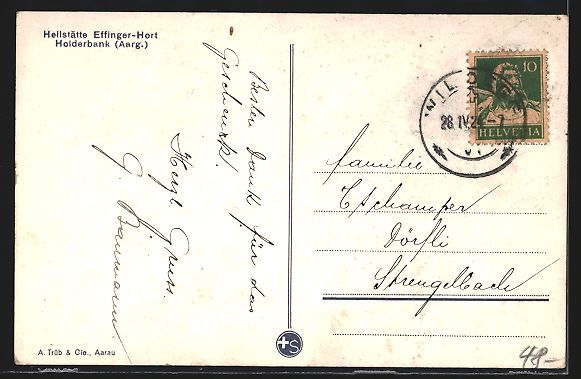 Heilstätte Effinger-Hort
Holderbank (Aarg.)
Besten Dank für das
Geschenk!
Herzl. Gruss.
G. Baumann
10
HELVETIA
28.IV.24-7
Familie
Tschamper
Dörfli
Strengelbach
A. Trüb & Cie., Aarau
S
48-